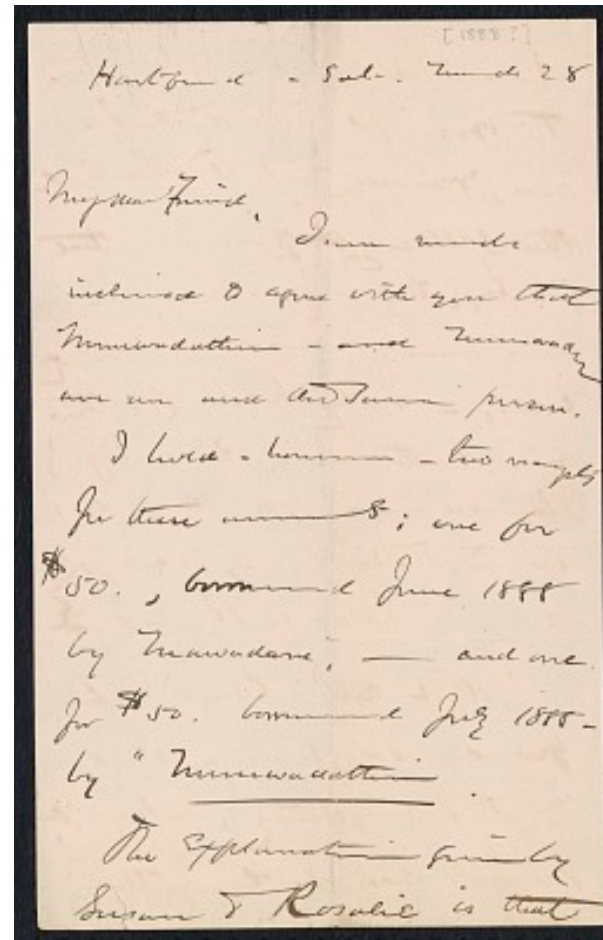 [1888?]
Hartford - Sat. March 28
My dear Friend,
I am much
inclined to agree with you that
and
are one and the same person.
I hold - however - two receipts
for these amounts; one for
$50., borrowed June 1888
by - and one
for $50. borrowed July 1888 -
by "
The explanation given by
Susan & Rosalie is that